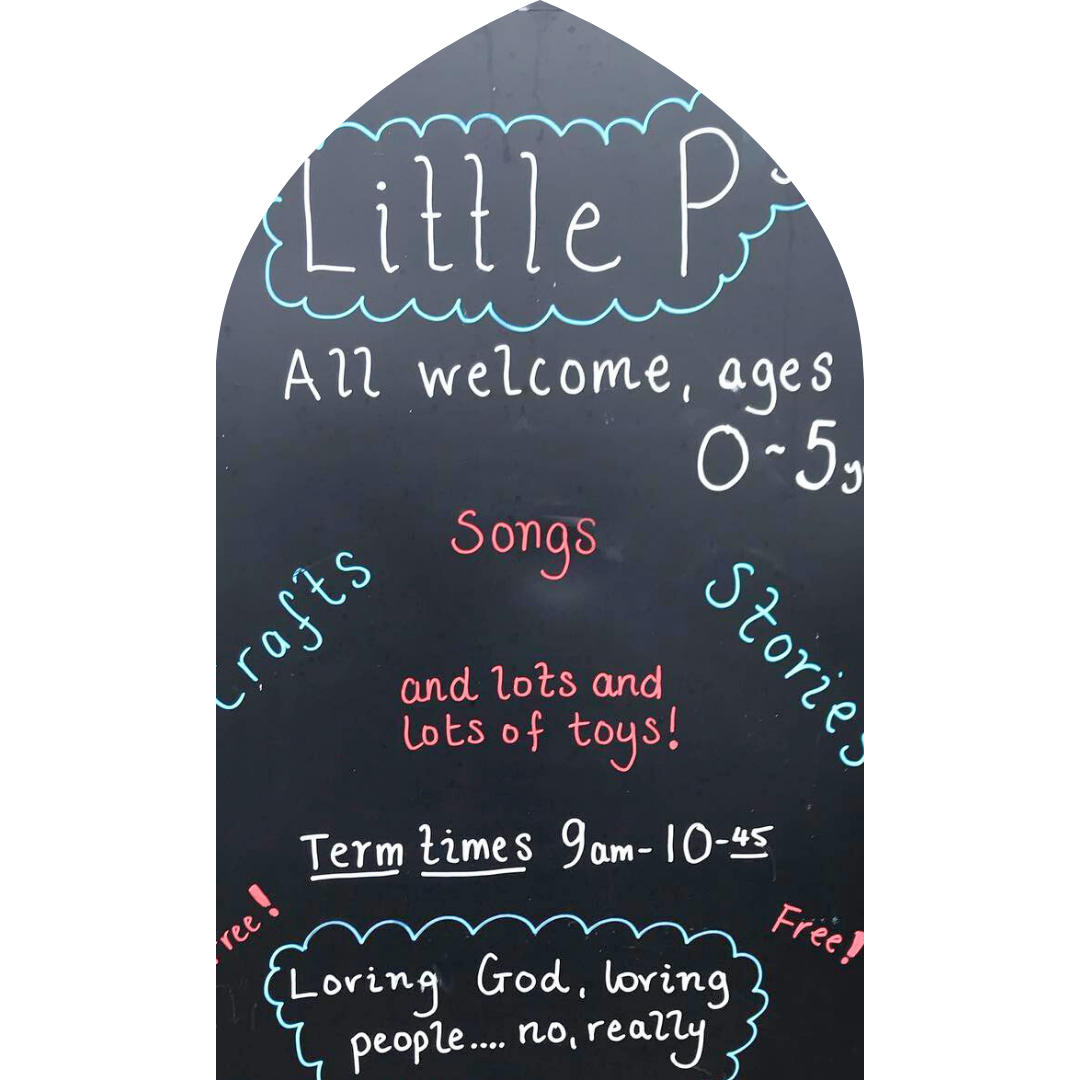 Little P
All welcome, ages
0-5y
Songs
Crafts
Stories
and lots and
lots of toys!
Term times 9am-10-45
Free!
Free!
Loving God, loving
people.... no, really